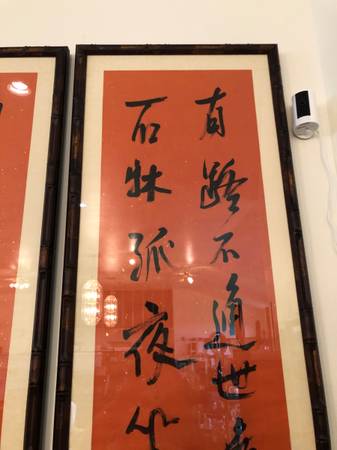 有路不通世
石牀孤夜坐